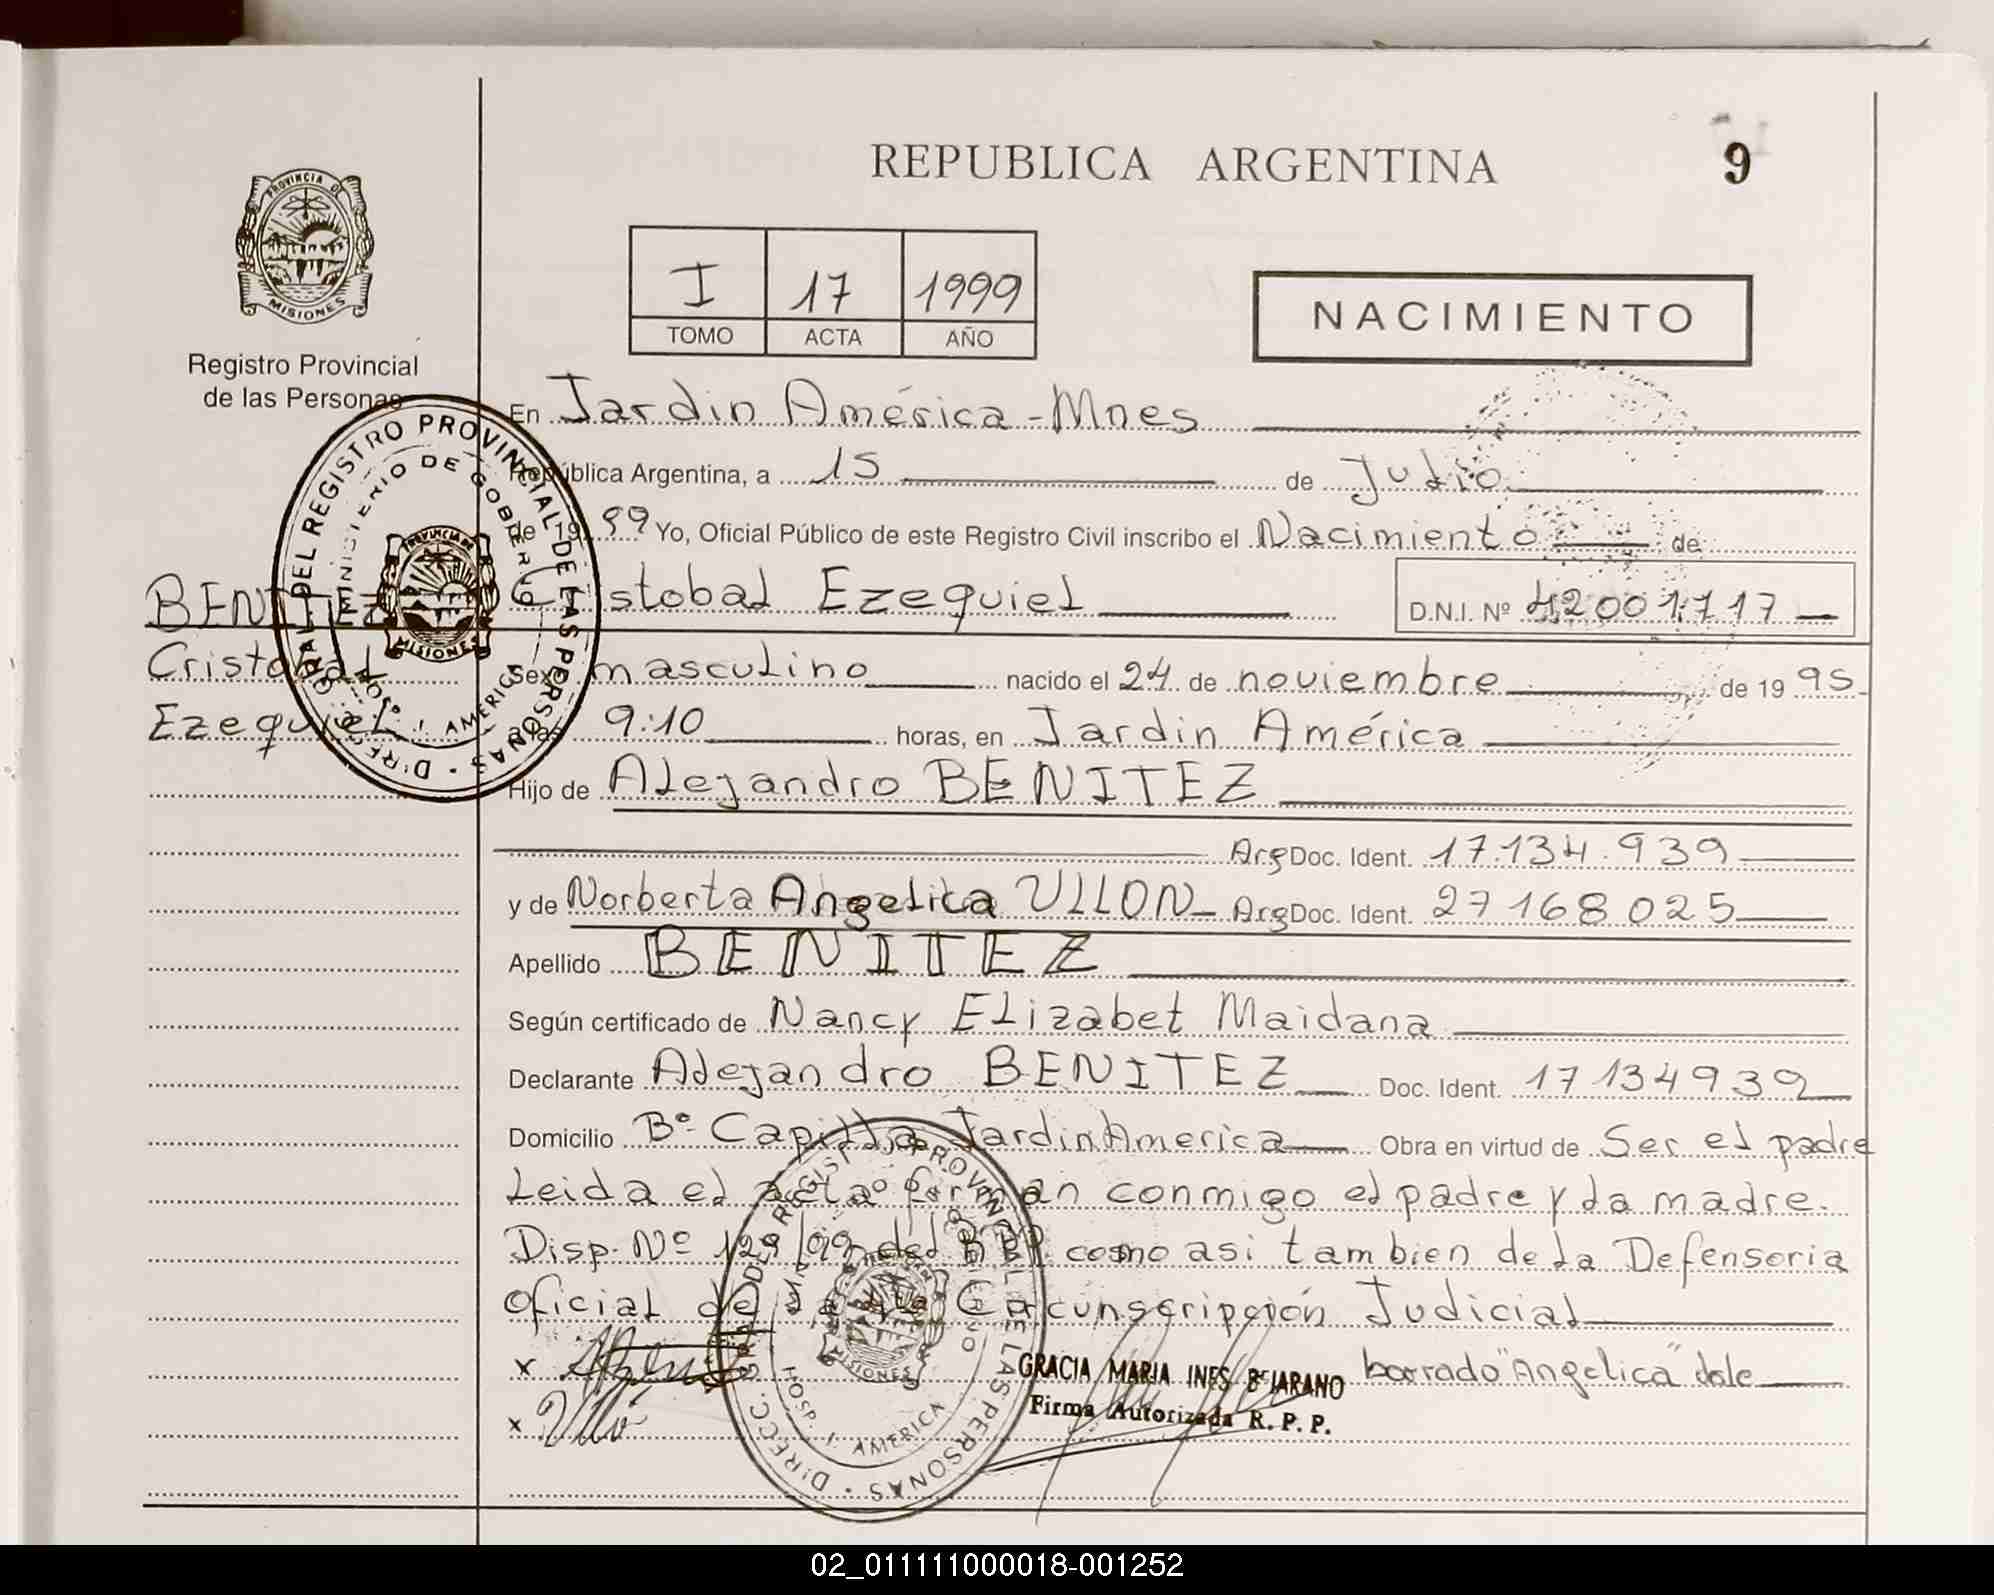 REPUBLICA ARGENTINA
9
PROVINCIA DE
MISIONES
Registro Provincial
de las Personas
I 17 1999
TOMO ACTA AÑO
NACIMIENTO
En Jardin América - Mnes
República Argentina, a 15 de Julio
de 1999 Yo, Oficial Público de este Registro Civil inscribo el Nacimiento de
BENITEZ Cristobal Ezequiel D.N.I. Nº 42001717
Cristobal
Ezequiel
Sexo masculino nacido el 24 de noviembre de 1995
a las 9:10 horas, en Jardin América
Hijo de Alejandro BENITEZ
Arg Doc. Ident. 17.134.939
y de Norberta Angelica ULLON Arg Doc. Ident. 27168025
Apellido BENITEZ
Según certificado de Nancy Elizabet Maidana
Declarante Alejandro BENITEZ Doc. Ident. 17134939
Domicilio Bº Capilla Jardin America Obra en virtud de Ser el padre
Leida el acta firman conmigo el padre y la madre.
Disp. Nº 129/99 del como asi tambien de la Defensoria
oficial de la Circunscripción Judicial
x
GRACIA MARIA INES BEJARANO
Firma Autorizada R. P. P.
borrado "Angelica" vale
x
DIRECC. GRAL. DEL REGISTRO PROVINCIAL DE LAS PERSONAS
MINISTERIO DE GOBIERNO
PROVINCIA DE
MISIONES
HOSP. J. AMERICA
DIRECC. GRAL. DEL REGISTRO PROVINCIAL DE LAS PERSONAS
MISIONES
HOSP. J. AMERICA
02_011111000018-001252